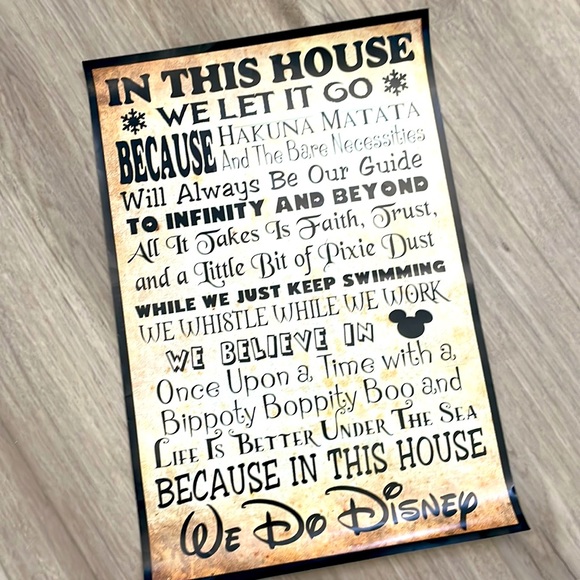 IN THIS HOUSE
WE LET IT GO
BECAUSE HAKUNA MATATA
And The Bare Necessities
Will Always Be Our Guide
TO INFINITY AND BEYOND
All It Takes Is Faith, Trust,
and a Little Bit of Pixie Dust
WHILE WE JUST KEEP SWIMMING
WE WHISTLE WHILE WE WORK
WE BELIEVE IN
Once Upon a Time with a
Bippoty Boppity Boo and
LIFE IS BETTER UNDER THE SEA
BECAUSE IN THIS HOUSE
We Do Disney